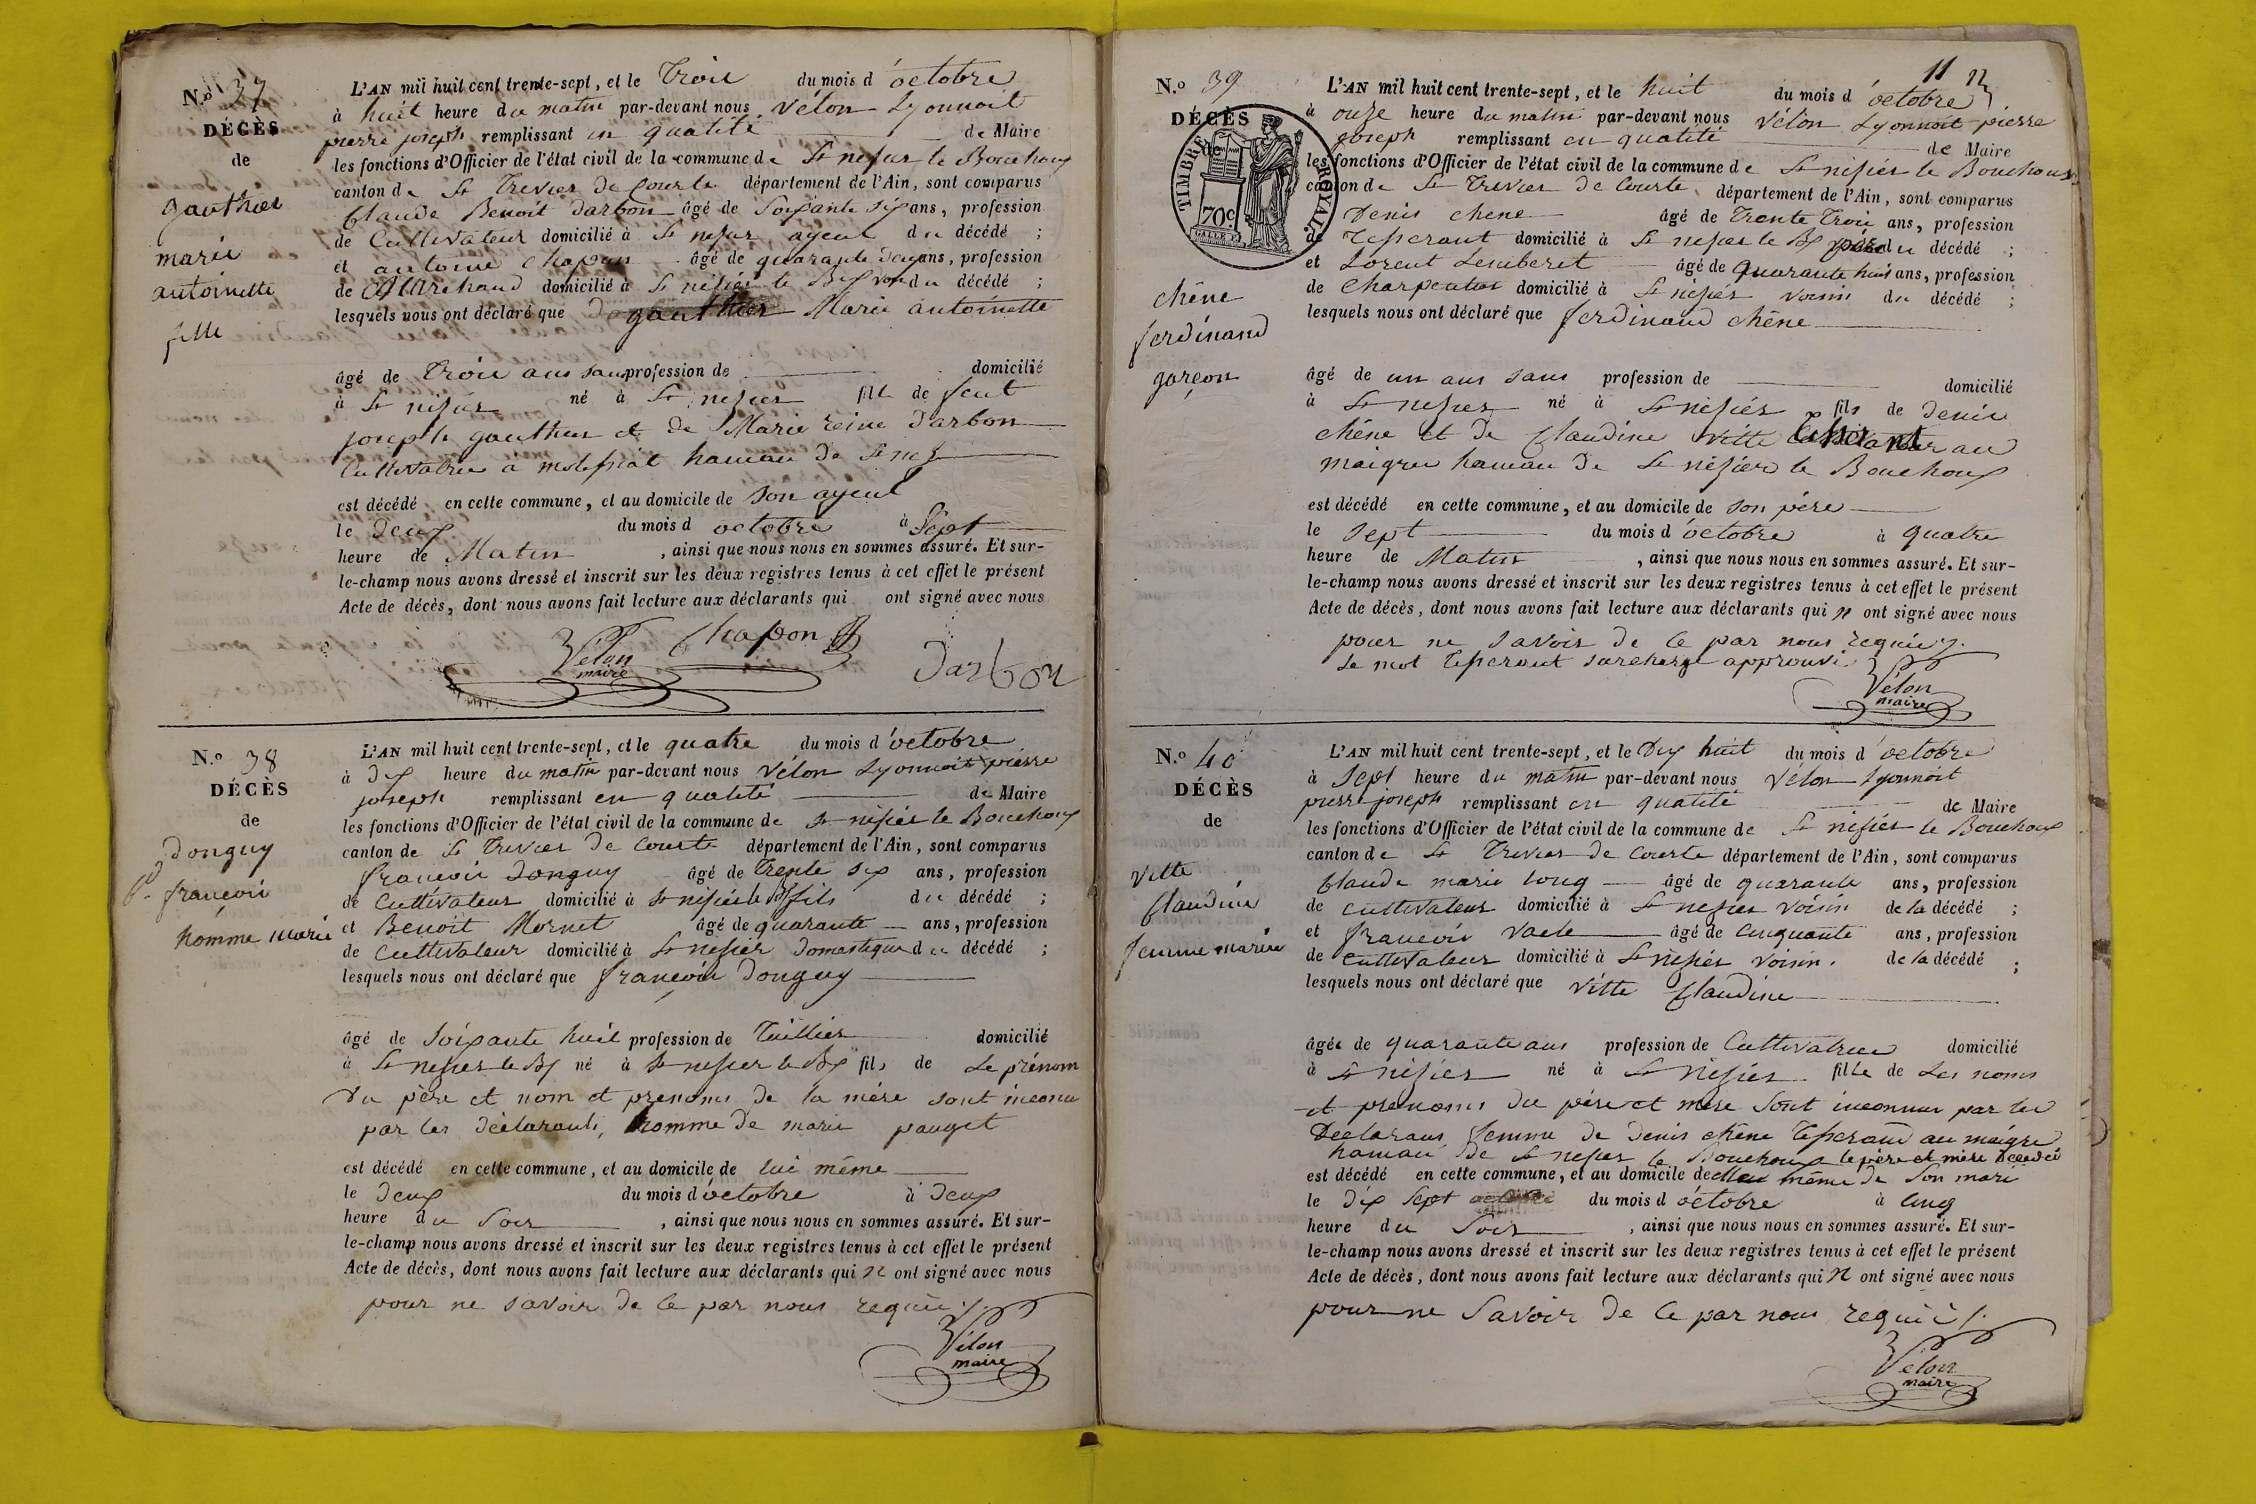 N.º 37
DÉCÈS
de
gauthier
marie
antoinette
fille
L'AN mil huit cent trente-sept, et le trois du mois d'octobre
à huit heure du matin par-devant nous vélon Lyonnoit
pierre joseph remplissant en qualité de Maire
les fonctions d'Officier de l'état civil de la commune de St nesier le Bouchoux
canton de St Trevier de Courte département de l'Ain, sont comparus
Claude Benoit Darbon âgé de soixante six ans, profession
de Cultivateur domicilié à St nesier ayeul du décédé ;
et antoine Chapon âgé de quarante ans, profession
de Marchand domicilié à St nésier le Bx du décédé ;
lesquels nous ont déclaré que gauthier Marie antoinette
âgé de trois ans sans profession de domicilié
à St nisier né à St nesier fille de feut
joseph gauthier et de Marie reine Darbon
Cultivatrice a hameau de St nez
est décédé en cette commune, et au domicile de son ayeul
le deux du mois d octobre à Sept
heure de Matin , ainsi que nous nous en sommes assuré. Et sur-
le-champ nous avons dressé et inscrit sur les deux registres tenus à cet effet le présent
Acte de décès, dont nous avons fait lecture aux déclarants qui ont signé avec nous
Vélon
maire
Chapon
Darbon
N.º 38
DÉCÈS
de
Donguy
françois
homme marié
L'AN mil huit cent trente-sept, et le quatre du mois d'octobre
à dix heure du matin par-devant nous Vélon Lyonnoit pierre
joseph remplissant en qualité de Maire
les fonctions d'Officier de l'état civil de la commune de St nisier le Bouchoux
canton de St Trevier de Courte département de l'Ain, sont comparus
françois Donguy âgé de Trente six ans, profession
de Cultivateur domicilié à St nisier le Bx fils du décédé ;
et Benoit Mornet âgé de quarante ans, profession
de Cultivateur domicilié à St nesier domestique du décédé ;
lesquels nous ont déclaré que françois Donguy
âgé de Soixante huit profession de Tuillier domicilié
à St nesier le Bx né à St nesier le Bx fils de Le prénom
Du père et nom et prenoms de la mère sont inconu
par les déclarants, homme de marie pauget
est décédé en cette commune, et au domicile de lui même
le deux du mois d'octobre à deux
heure du Soir , ainsi que nous nous en sommes assuré. Et sur-
le-champ nous avons dressé et inscrit sur les deux registres tenus à cet effet le présent
Acte de décès, dont nous avons fait lecture aux déclarants qui n ont signé avec nous
pour ne savoir de ce par nous requis
Vélon
maire
11
N.º 39
DÉCÈS
de
TIMBRE ROYAL
70c
chêne
ferdinand
garçon
L'AN mil huit cent trente-sept, et le huit du mois d'octobre
à onze heure du matin par-devant nous Vélon Lyonnoit pierre
joseph remplissant en qualité de Maire
les fonctions d'Officier de l'état civil de la commune de St nisier le Bouchoux
canton de St Trevier de Courte département de l'Ain, sont comparus
Denis chene âgé de Trente Trois ans, profession
de Tisserant domicilié à St nesier le Bx père du décédé ;
et Lorent Lemberet âgé de quarante huit ans, profession
de Charpentier domicilié à St nésier voisin du décédé ;
lesquels nous ont déclaré que ferdinand chêne
âgé de un ans sans profession de domicilié
à St nesier né à St nésier fils de Denis
chêne et de Claudine Vitte au
maigre hameau de St nésier le Bouchoux
est décédé en cette commune, et au domicile de son père
le Sept du mois d'octobre à quatre
heure de Matin , ainsi que nous nous en sommes assuré. Et sur-
le-champ nous avons dressé et inscrit sur les deux registres tenus à cet effet le présent
Acte de décès, dont nous avons fait lecture aux déclarants qui n ont signé avec nous
pour ne savoir de ce par nous requis
Le mot Tisserant surcharge approuvé
Vélon
maire
N.º 40
DÉCÈS
de
Vitte
Claudine
femme mariée
L'AN mil huit cent trente-sept, et le Dix huit du mois d octobre
à Sept heure du matin par-devant nous Vélon Lyonnoit
pierre joseph remplissant en qualité de Maire
les fonctions d'Officier de l'état civil de la commune de St nisier le Bouchoux
canton de St Trevier de Courte département de l'Ain, sont comparus
Claude marie long âgé de quarante ans, profession
de cultivateur domicilié à St nesier voisin de la décédé ;
et françois âgé de Cinquante ans, profession
de cultivateur domicilié à St nésier voisin de la décédé ;
lesquels nous ont déclaré que Vitte Claudine
âgée de quarante ans profession de Cultivatrice domicilié
à St nésier né à St nésier fille de Les noms
et prenoms du père et mère sont inconnus par les
Declarans, femme de Denis chêne Tisserand au maigre
hameau de St nesier le Bouchoux le père et mère Décédés
est décédé en cette commune, et au domicile de même de son mari
le Dix Sept du mois d octobre à Cinq
heure du Soir , ainsi que nous nous en sommes assuré. Et sur-
le-champ nous avons dressé et inscrit sur les deux registres tenus à cet effet le présent
Acte de décès, dont nous avons fait lecture aux déclarants qui n ont signé avec nous
pour ne savoir de ce par nous requis
Vélon
maire